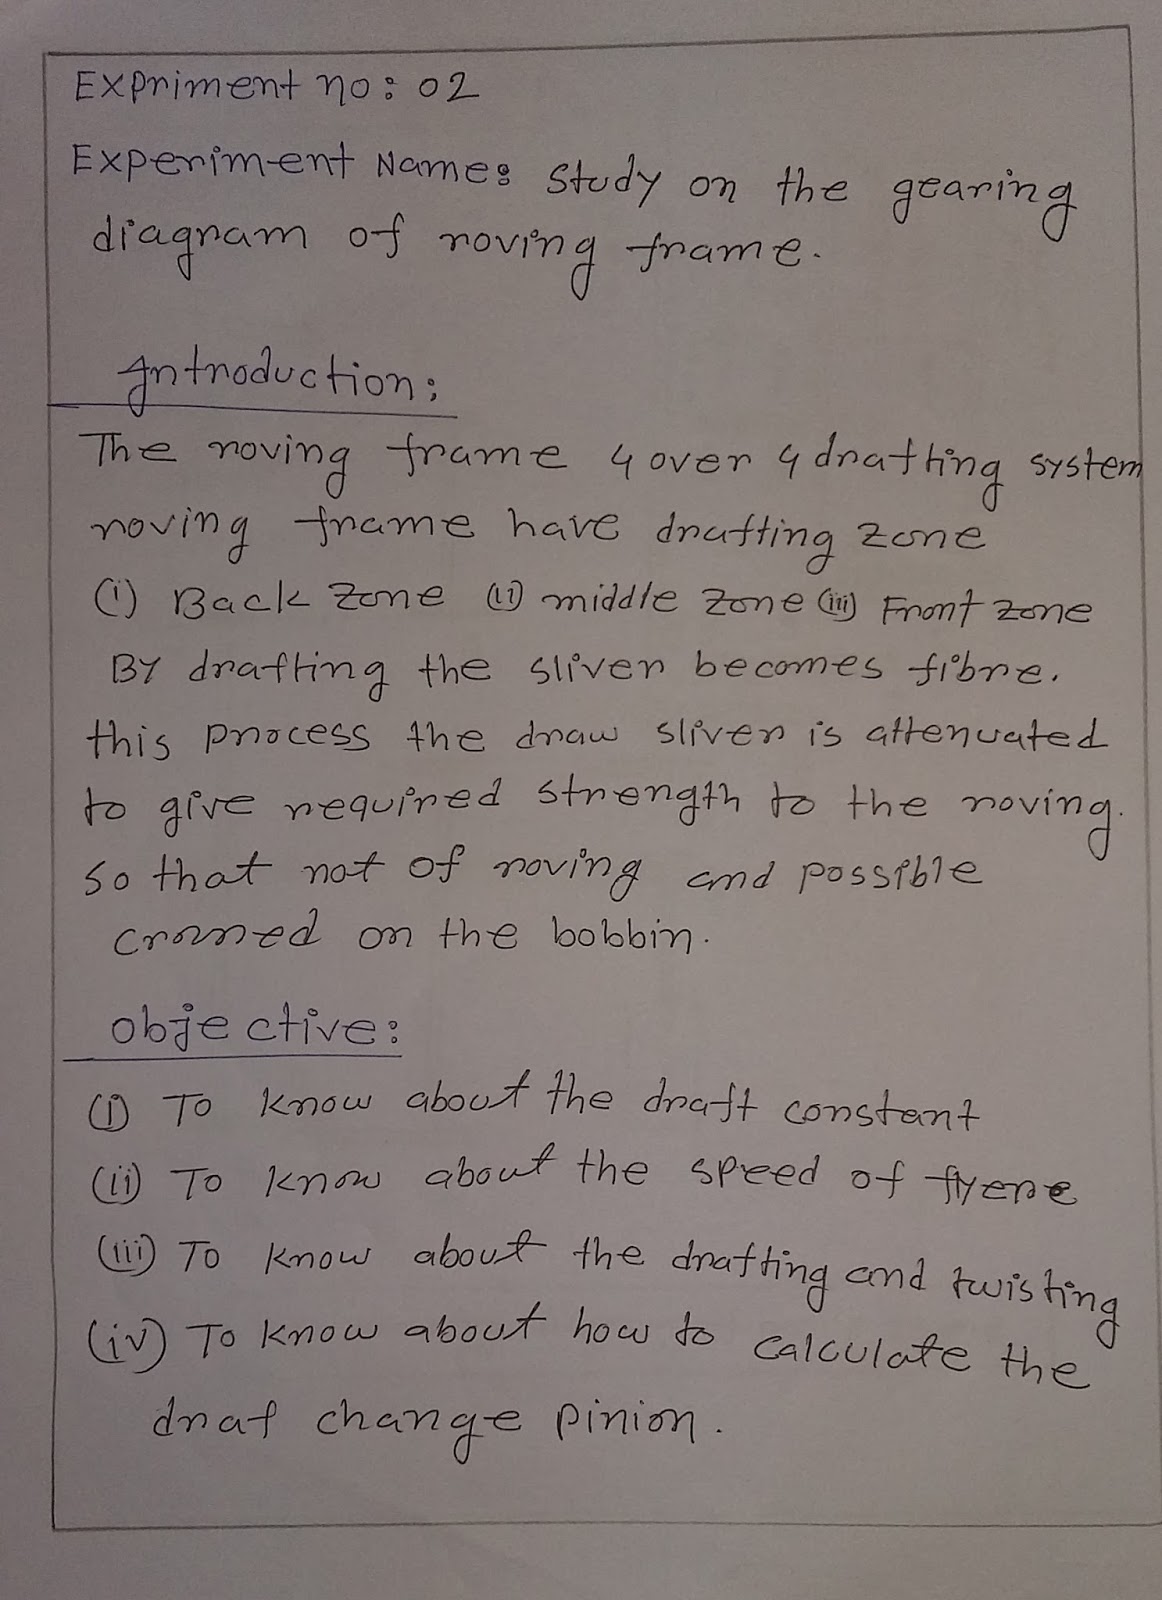 Expriment no: 02
Experiment Name: Study on the gearing
diagram of roving frame.
Introduction:
The roving frame 4 over 4 drafting system
roving frame have drafting zone
(i) Back zone (ii) middle zone (iii) Front zone
By drafting the sliver becomes fibre.
this process the draw sliver is attenuated
to give required strength to the roving.
so that not of roving and possible
on the bobbin.
objective:
(i) To know about the draft constant
(ii) To know about the speed of
(iii) To know about the drafting and twisting
(iv) To know about how to calculate the
draf change pinion.